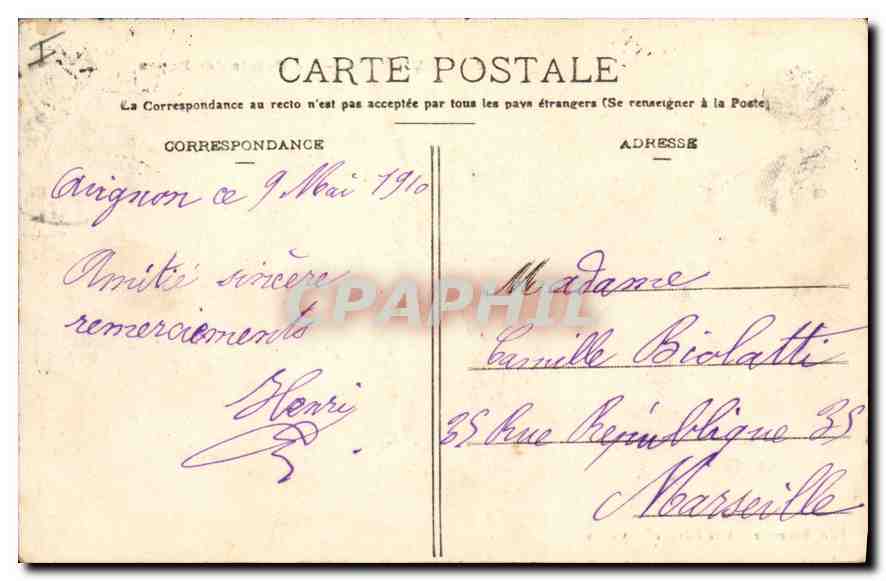 CARTE POSTALE
La Correspondance au recto n'est pas acceptée par tous les pays étrangers (Se renseigner à la Poste)
CORRESPONDANCE
Avignon ce 9 Mai 1910
Amitié sincère
remerciements
Henri
ADRESSE
Madame
Camille Biolatti
35 Rue République 35
Marseille
CPAPHIL